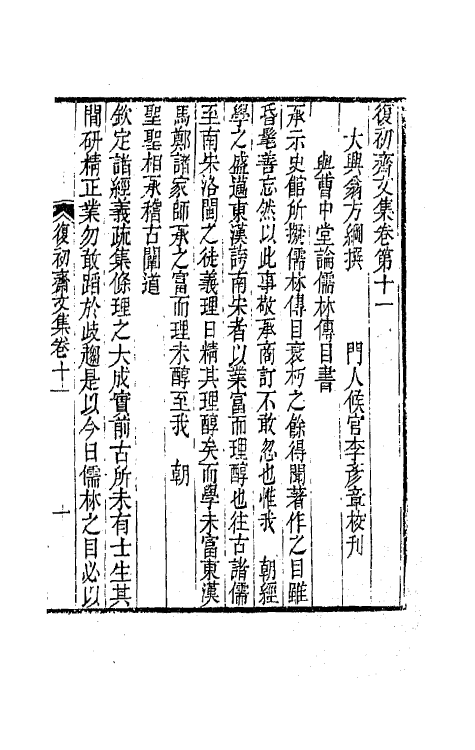 復初齋文集卷第十一
大興翁方綱撰　　門人候官李彥章校刊
與曹中堂論儒林傳目書
承示史館所擬儒林傳目衰朽之餘得聞著作之目雖
昏耄善忘然以此事敬承商訂不敢忽也惟我　朝經
學之盛邁東漢諸南宋者以業富而理醇也往古諸儒
至南宋洛閩之徒義理日精其理醇矣而學未富東漢
馬鄭諸家師承之富而理未醇至我　朝
聖聖相承稽古闡道
欽定諸經義疏集條理之大成實前古所未有士生其
間研精正業勿敢蹈於歧趨是以今日儒林之目必以
復初齋文集卷十一
一